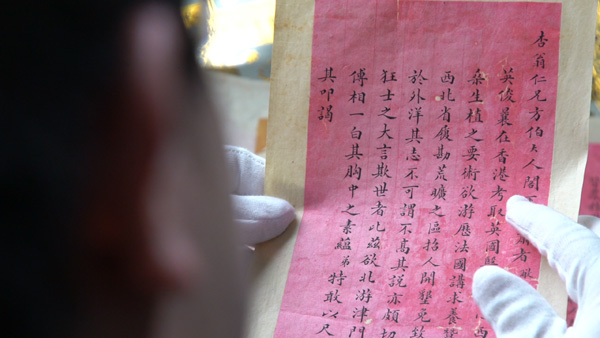 杏翁仁兄方伯大人閣
英俊曩在香港考取英國醫西
桑生植之要術欲游歷法國講求養蠶
西北省履勘荒曠之區招人開墾免致
於外洋其志不可謂不高其說亦頗切
狂士之大言欺世者比茲欲北游津門
傅相一白其胸中之素蘊弟特敢以尺
其叩謁